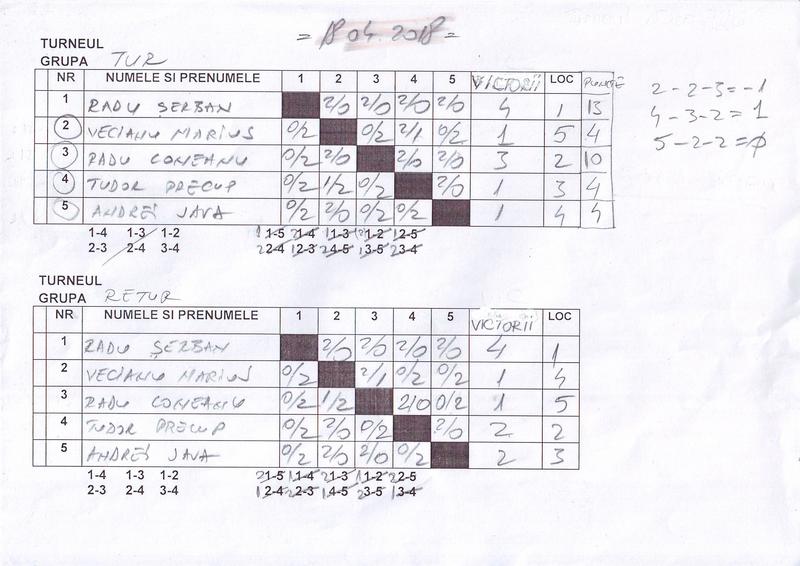 = 18 04. 2018 =
TURNEUL
GRUPA TUR
NR NUMELE SI PRENUMELE 1 2 3 4 5 VICTORII LOC PUNCTE
1 RADU ȘERBAN 2/0 2/0 2/0 2/0 4 1 13
2 VECIANU MARIUS 0/2 0/2 2/1 0/2 1 5 4
3 RADU CONEANU 0/2 2/0 2/0 2/0 3 2 10
4 TUDOR PRECUP 0/2 1/2 0/2 2/0 1 3 4
5 ANDREI JAVA 0/2 2/0 0/2 0/2 1 4 4
2 - 2 - 3 = -1
4 - 3 - 2 = 1
5 - 2 - 2 = 0
1-4 1-3 1-2 1-5 1-4 1-3 1-2 2-5
2-3 2-4 3-4 2-4 2-3 4-5 3-5 3-4
TURNEUL
GRUPA RETUR
NR NUMELE SI PRENUMELE 1 2 3 4 5 VICTORII LOC
1 RADU ȘERBAN 2/0 2/0 2/0 2/0 4 1
2 VECIANU MARIUS 0/2 2/1 0/2 0/2 1 4
3 RADU CONEANU 0/2 1/2 2/0 0/2 1 5
4 TUDOR PRECUP 0/2 2/0 0/2 2/0 2 2
5 ANDREI JAVA 0/2 2/0 2/0 0/2 2 3
1-4 1-3 1-2 1-5 1-4 1-3 1-2 2-5
2-3 2-4 3-4 2-4 2-3 4-5 3-5 3-4